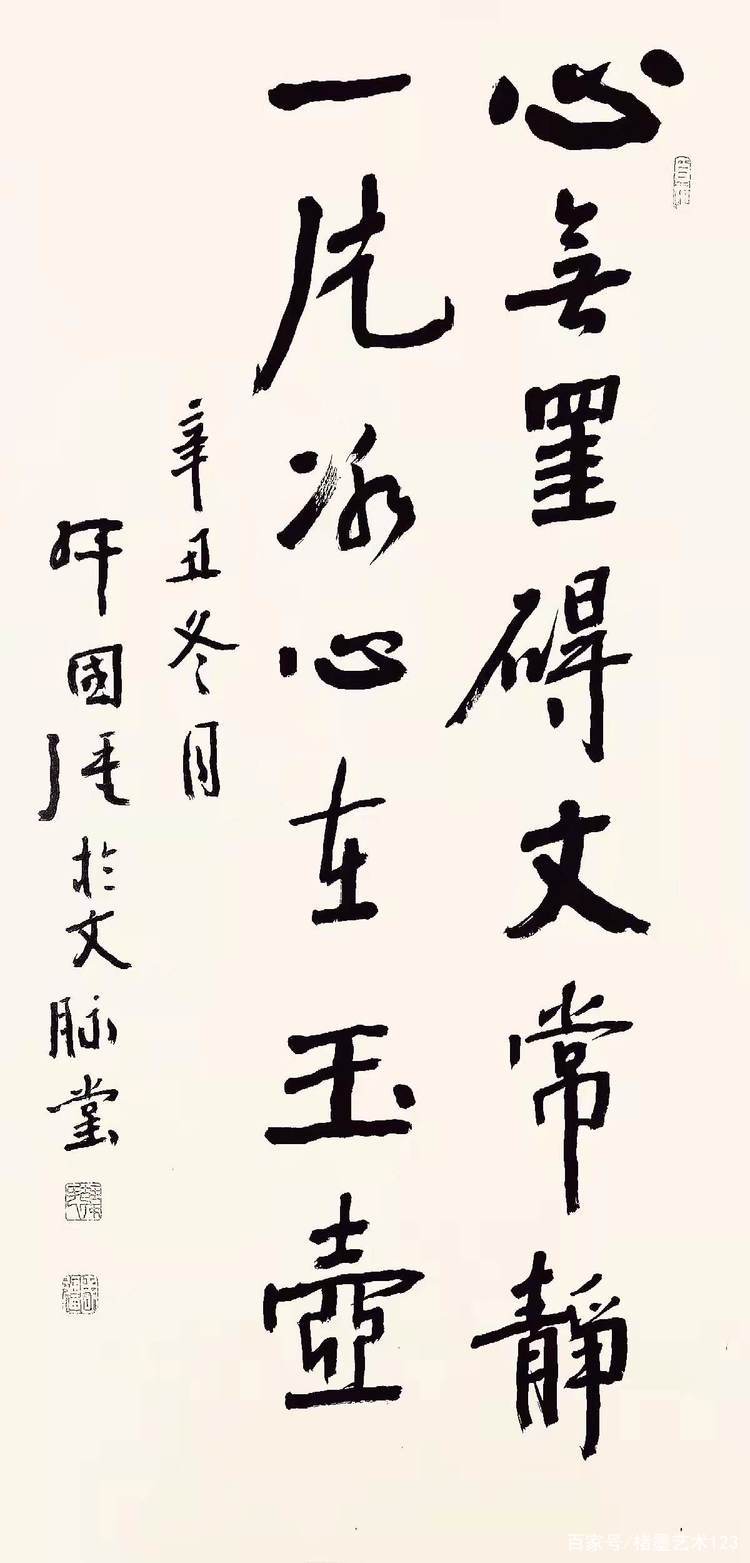 心無罣碍文常靜
一片冰心在玉壺
辛丑冬月
國 於文脉堂
百家号/楮墨艺术123